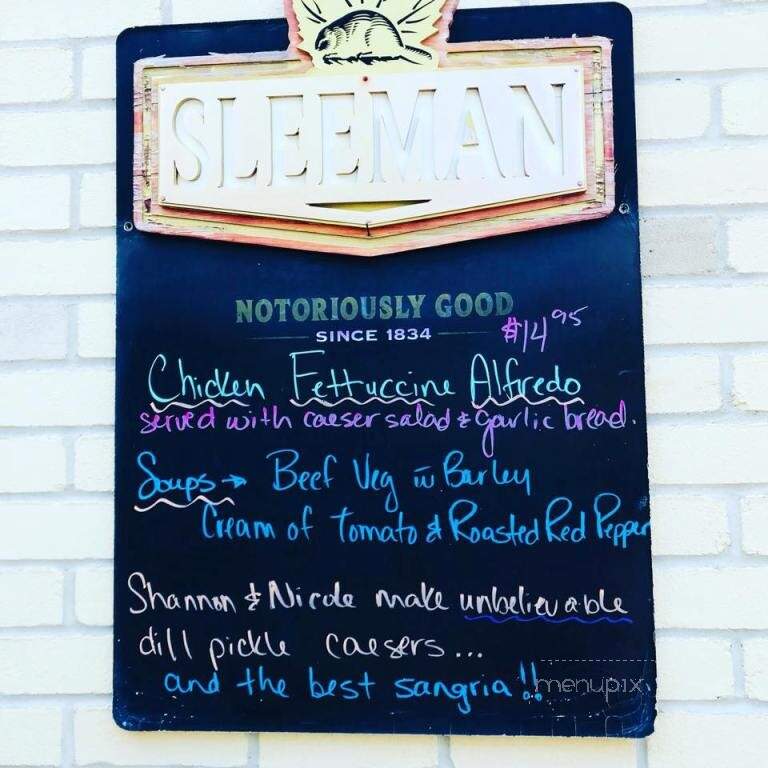 SLEEMAN
NOTORIOUSLY GOOD
SINCE 1834
$14.95
Chicken Fettuccine Alfredo
served with caeser salad & garlic bread.
Soups → Beef Veg w Barley
Cream of Tomato & Roasted Red Pepper
Shannon & Nicole make unbelievable
dill pickle caesers...
and the best sangria!!
menupix